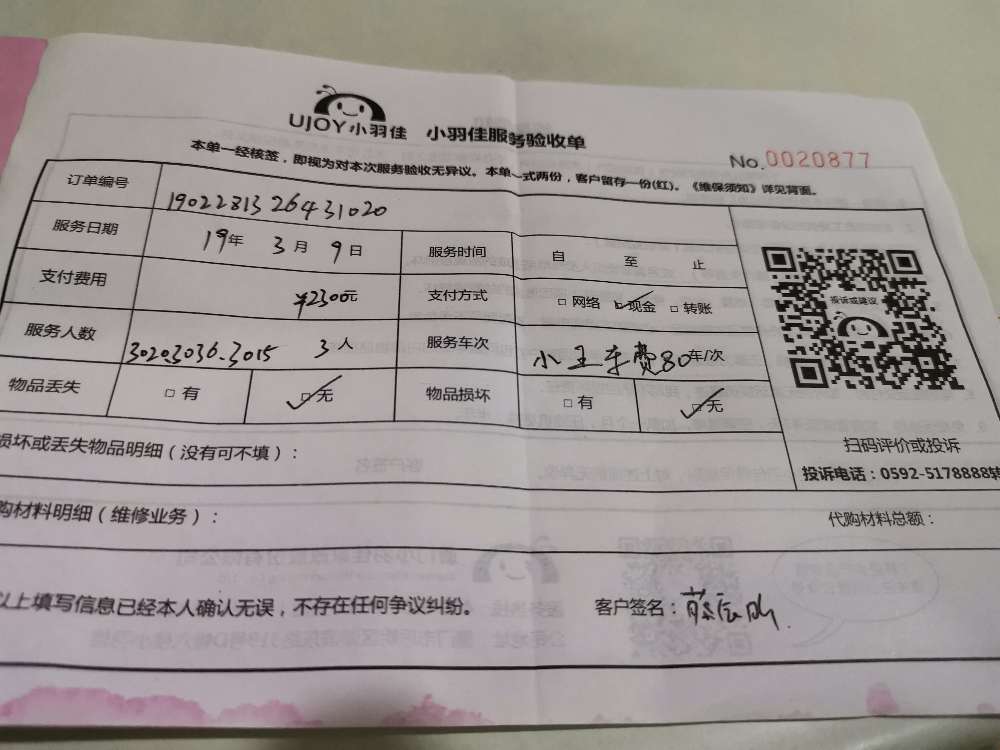 UJOY小羽佳 小羽佳服务验收单
本单一经核签，即视为对本次服务验收无异议。本单一式两份，客户留存一份(红)。《维保须知》详见背面。
No.0020877
订单编号 1902281326431020
服务日期 19年 3月 9日 服务时间 自 至 止
支付费用 ¥2300元 支付方式 □ 网络 ☑ 现金 □ 转账
服务人数 30203036.3015 3人 服务车次 小王车费80车/次
物品丢失 □ 有 ☑ 无 物品损坏 □ 有 ☑ 无
投诉或建议
扫码评价或投诉
投诉电话：0592-5178888转
损坏或丢失物品明细（没有可不填）：
购材料明细（维修业务）： 代购材料总额：
以上填写信息已经本人确认无误，不存在任何争议纠纷。 客户签名：